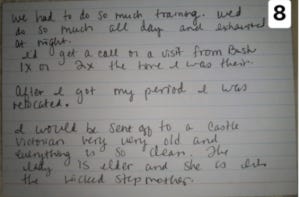 8
we had to do so much training. wed
do so much all day and exhausted
at night.
Id get a call or a visit from Bush
1x or 2x the time I was their.
After I got my period I was
relocated.
I would be sent off to a castle
victorian very very old and
everything is so clean. The
lady is elder and she is like
the wicked step mother.